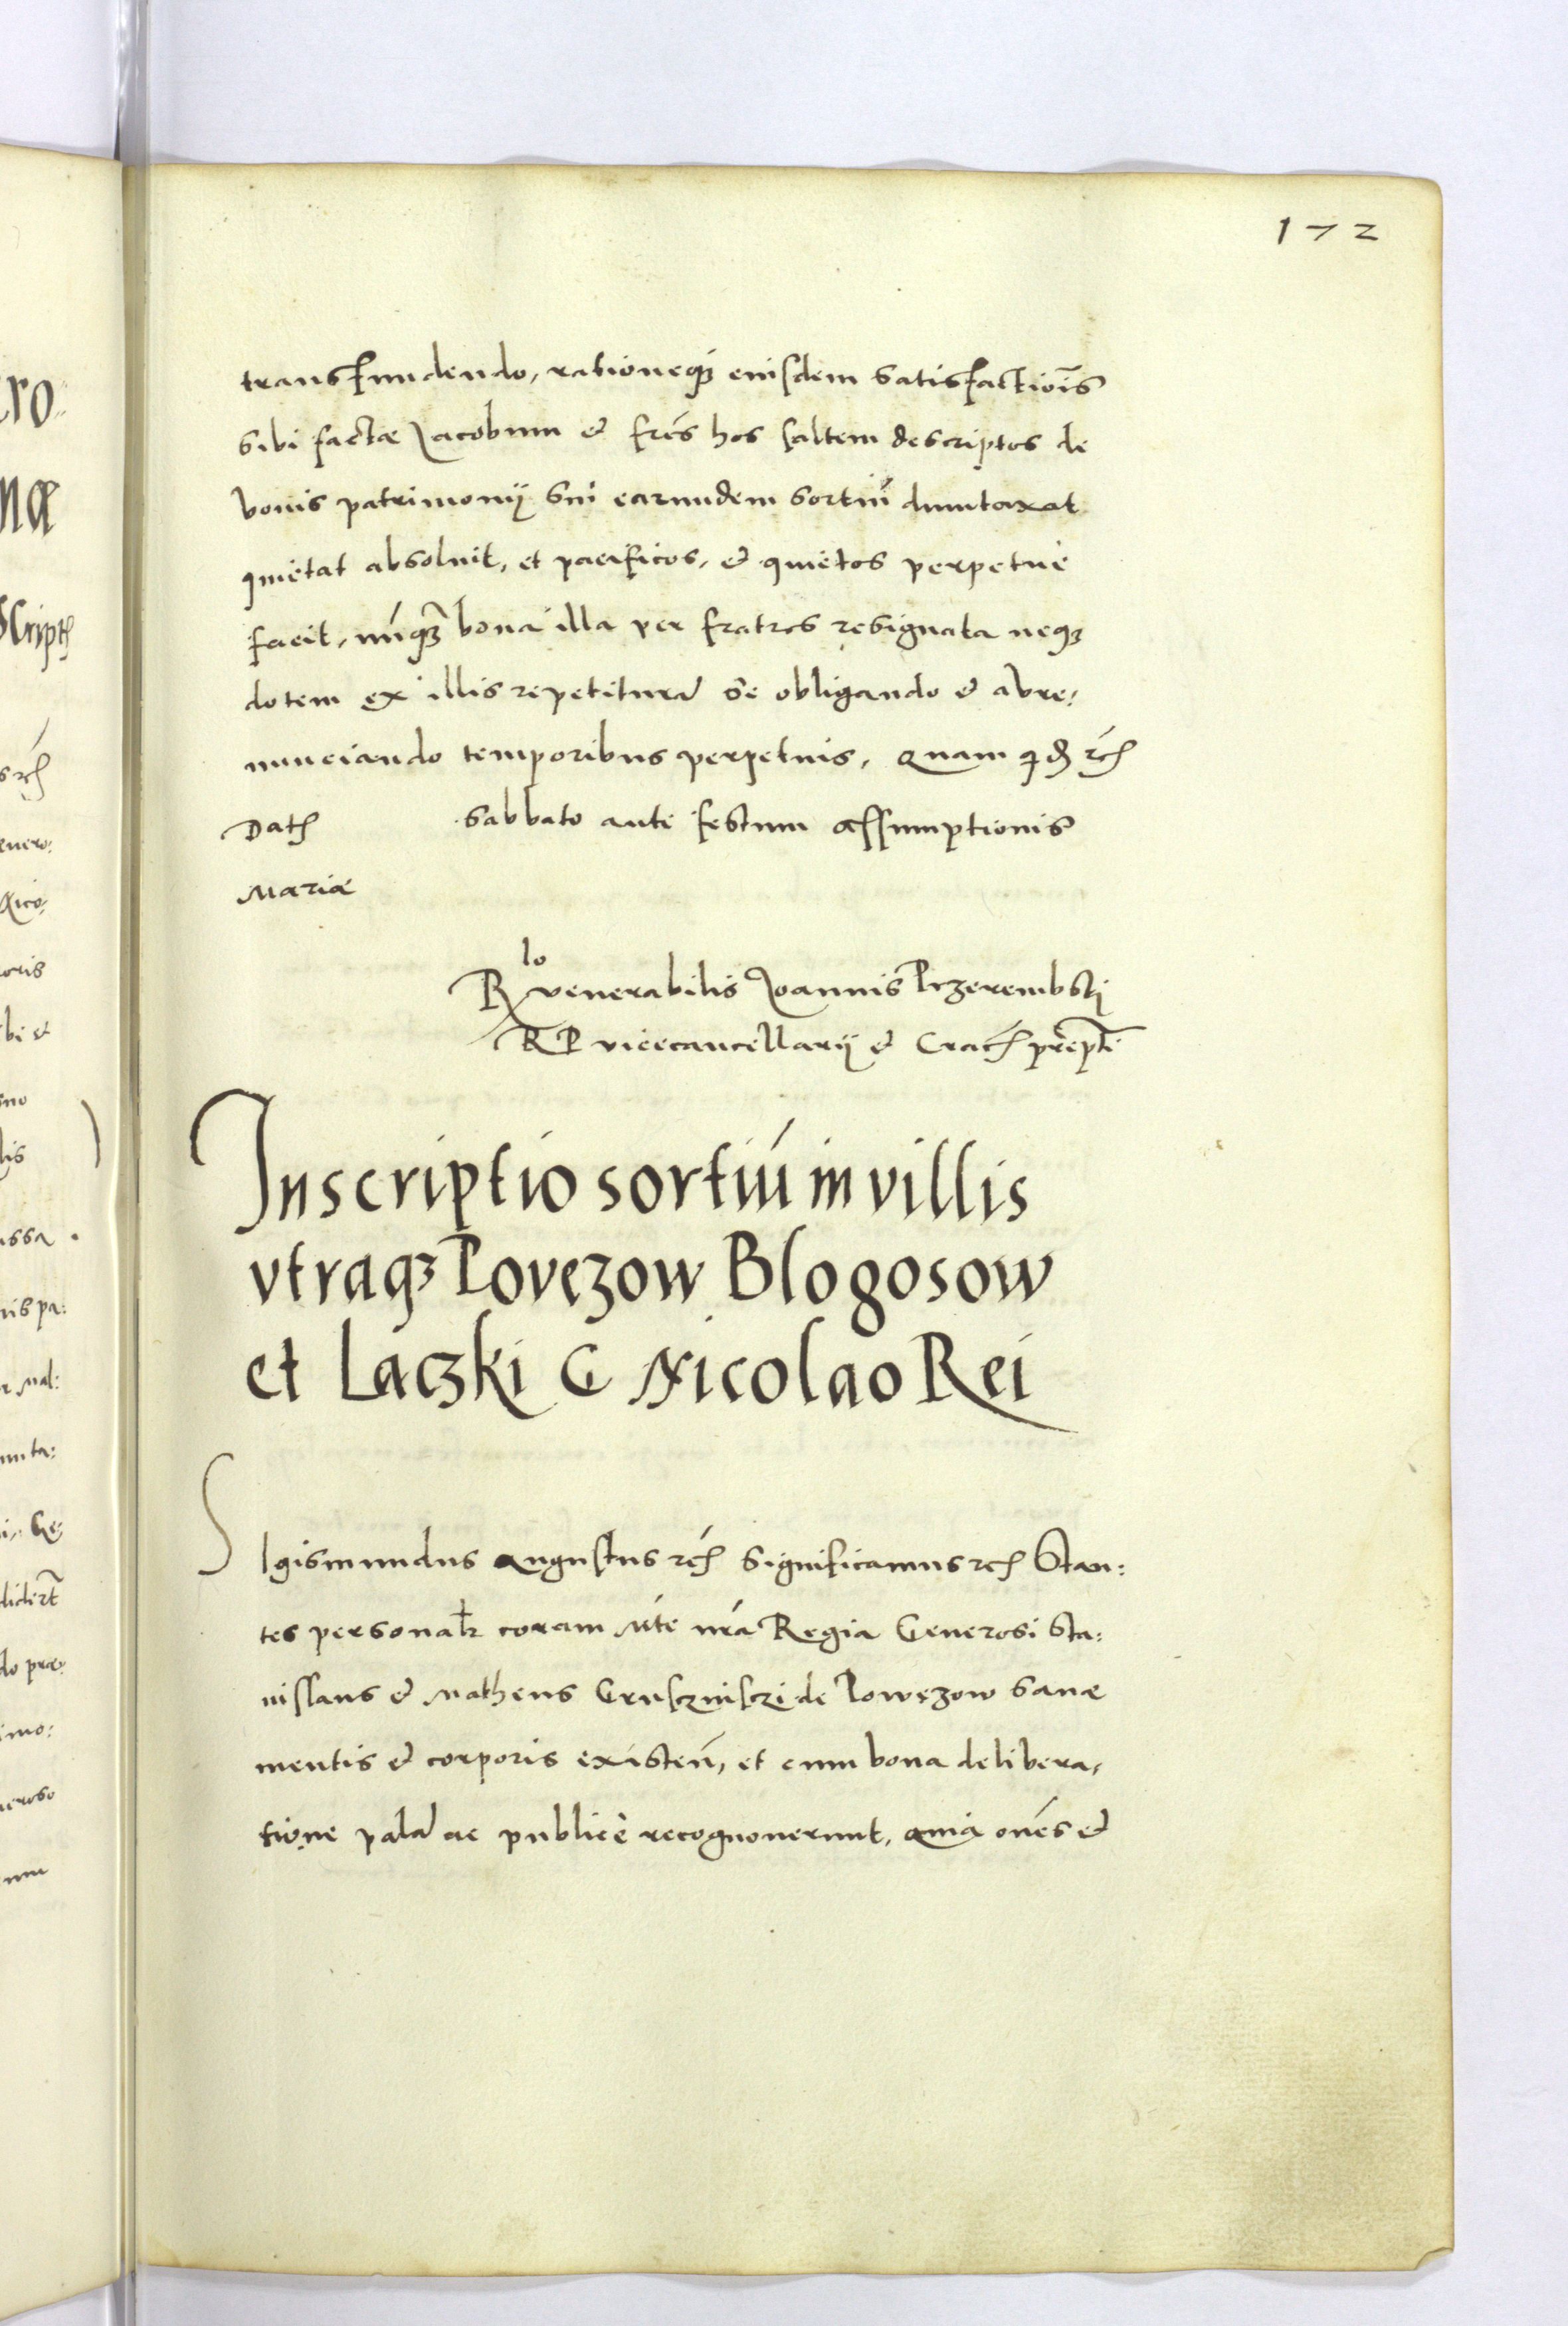 172
transfundendo, rationeq3 eiusdem satisfactiōis
sibi factæ Jacobum et frēs hos saltem descriptos de
bonis patrimonij sui earundem sortiū dumtaxat
quietat absoluit, et pacificos, et quietos perpetue
facit, nūq3 bona illa per fratres resignata neq3
dotem ex illis repetiturā se obligando et abre:
nunciando temporibus perpetuis, Quam qd̄ rc̄
Dat sabbato ante festum assumptionis
Mariæ
Rlo venerabilis Joannis Przerembski
RP vicecancellarij et Crac̄ præpti
Inscriptio sortiū in villis
vtraq3 Povęzow Blogosow
et Laczki G Nicolao Rei
SIgismundus Augustus rc̄ significamus rc̄ Stan:
tes personalr coram Mte nrā Regia Generosi Sta:
nislaus et Matheus Grusczinsczi de Powęzow sanæ
mentis et corporis existeñ, et cum bona delibera,
tione palā ac publicè recognouerunt, quia oēs et